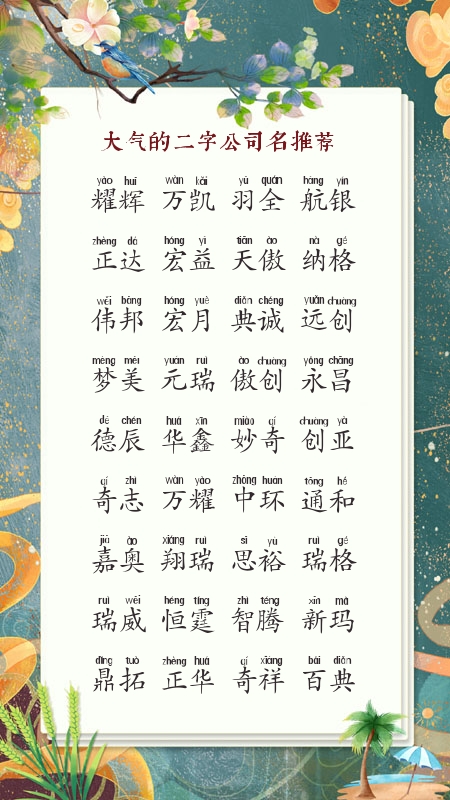 大气的二字公司名推荐
yào huī wàn kǎi yǔ quán háng yín
耀辉 万凯 羽全 航银
zhèng dá hóng yì tiān ào nà gé
正达 宏益 天傲 纳格
wěi bāng hóng yuè diǎn chéng yuǎn chuàng
伟邦 宏月 典诚 远创
mèng měi yuán ruì ào chuàng yǒng chāng
梦美 元瑞 傲创 永昌
dé chén huá xīn miào qí chuàng yà
德辰 华鑫 妙奇 创亚
qí zhì wàn yào zhōng huán tōng hé
奇志 万耀 中环 通和
jiā ào xiáng ruì sī yù ruì gé
嘉奥 翔瑞 思裕 瑞格
ruì wēi héng tíng zhì téng xīn mǎ
瑞威 恒霆 智腾 新玛
dǐng tuò zhèng huá qí xiáng bǎi diǎn
鼎拓 正华 奇祥 百典